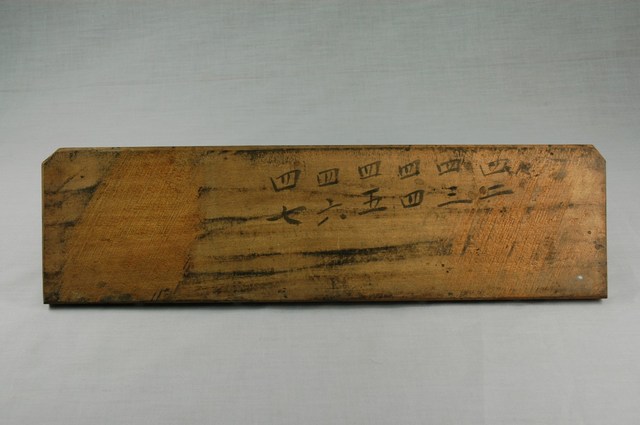 四二
四三
四四
四五
四六
四七